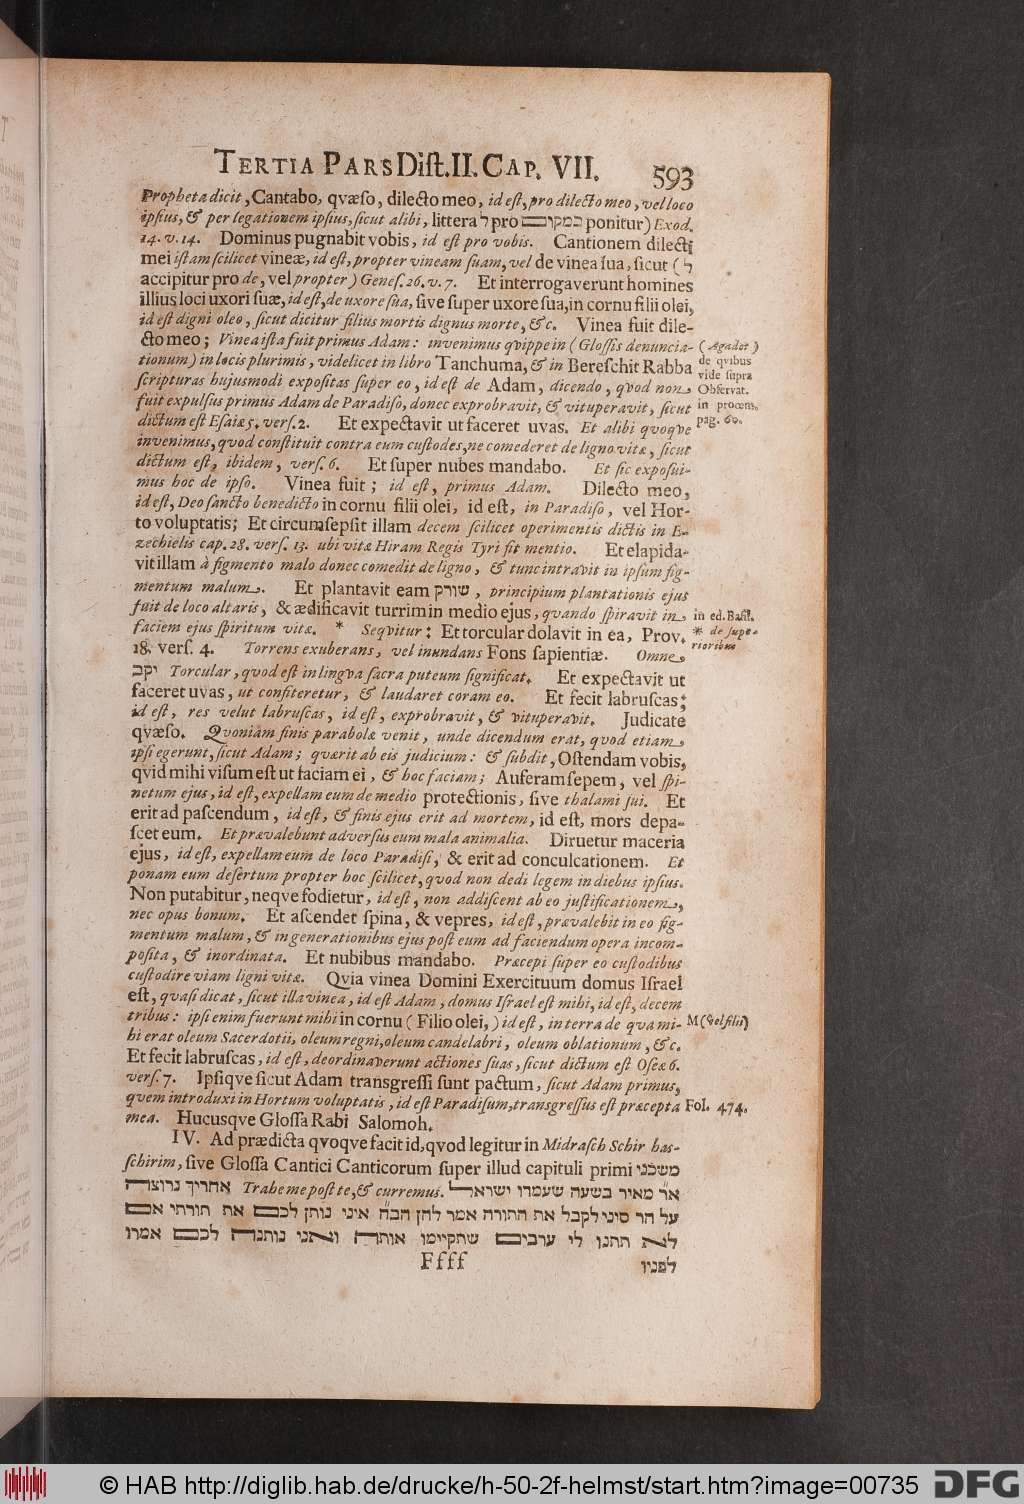 TERTIA PARS Diſt. II. CAP. VII. 593
Propheta dicit, Cantabo, qvæſo, dilecto meo, id eſt, pro dilecto meo, vel loco
ipſius, & per legationem ipſius, ſicut alibi, littera ל pro במקום ponitur) Exod.
14. v. 14. Dominus pugnabit vobis, id eſt pro vobis. Cantionem dilecti
mei iſtam ſcilicet vineæ, id eſt, propter vineam ſuam, vel de vinea ſua, ſicut (ל
accipitur pro de, vel propter) Geneſ. 26. v. 7. Et interrogaverunt homines
illius loci uxori ſuæ, id eſt, de uxore ſua, ſive ſuper uxore ſua, in cornu filii olei,
id eſt digni oleo, ſicut dicitur filius mortis dignus morte, &c. Vinea fuit dile-
cto meo; Vinea iſta fuit primus Adam: invenimus qvippe in (Gloſſis denuncia-
tionum) in locis plurimis, videlicet in libro Tanchuma, & in Bereſchit Rabba
ſcripturas hujusmodi expoſitas ſuper eo, id eſt de Adam, dicendo, qvod non
fuit expulſus primus Adam de Paradiſo, donec exprobravit, & vituperavit, ſicut
dictum eſt Eſaiæ 5. verſ. 2. Et expectavit ut faceret uvas. Et alibi qvoqve
invenimus, quod conſtituit contra eum cuſtodes, ne comederet de ligno vitæ, ſicut
dictum eſt, ibidem, verſ. 6. Et ſuper nubes mandabo. Et ſic expoſui-
mus hoc de ipſo. Vinea fuit; id eſt, primus Adam. Dilecto meo,
id eſt, Deo ſancto benedicto in cornu filii olei, id eſt, in Paradiſo, vel Hor-
to voluptatis; Et circumſepſit illam decem ſcilicet operimentis dictis in E-
zechielis cap. 28. verſ. 13. ubi vitæ Hiram Regis Tyri fit mentio. Et elapida-
vit illam à figmento malo donec comedit de ligno, & tunc intravit in ipſum fig-
mentum malum. Et plantavit eam שורק, principium plantationis ejus
fuit de loco altaris, & ædificavit turrim in medio ejus, quando ſpiravit in
faciem ejus ſpiritum vitæ. * Seqvitur: Et torcular dolavit in ea, Prov.
18. verſ. 4. Torrens exuberans, vel inundans Fons ſapientiæ. Omne
יקב Torcular, quod eſt in lingva ſacra puteum ſignificat. Et expectavit ut
faceret uvas, ut confiteretur, & laudaret coram eo. Et fecit labruſcas;
id eſt, res velut labruſcas, id eſt, exprobravit, & vituperavit. Judicate
qvæſo. Qvoniam finis parabolæ venit, unde dicendum erat, quod etiam
ipſi egerunt, ſicut Adam; quærit ab eis judicium: & ſubdit, Oſtendam vobis,
qvid mihi viſum eſt ut faciam ei, & hoc faciam; Auferam ſepem, vel ſpi-
netum ejus, id eſt, expellam eum de medio protectionis, ſive thalami ſui. Et
erit ad paſcendum, id eſt, & finis ejus erit ad mortem, id eſt, mors depa-
ſcet eum. Et prævalebunt adverſus eum mala animalia. Diruetur maceria
ejus, id eſt, expellam eum de loco Paradiſi, & erit ad conculcationem. Et
ponam eum deſertum propter hoc ſcilicet, quod non dedi legem in diebus ipſius.
Non putabitur, neqve fodietur, id eſt, non addiſcent ab eo juſtificationem,
nec opus bonum. Et aſcendet ſpina, & vepres, id eſt, prævalebit in eo fig-
mentum malum, & in generationibus ejus poſt eum ad faciendum opera incom-
poſita, & inordinata. Et nubibus mandabo. Præcepi ſuper eo cuſtodibus
cuſtodire viam ligni vitæ. Qvia vinea Domini Exercituum domus Iſrael
eſt, quaſi dicat, ſicut illa vinea, id eſt Adam, domus Iſrael eſt mihi, id eſt, decem
tribus: ipſi enim fuerunt mihi in cornu (Filio olei,) id eſt, in terra de qva mi-
hi erat oleum Sacerdotii, oleum regni, oleum candelabri, oleum oblationum, &c.
Et fecit labruſcas, id eſt, deordinaverunt actiones ſuas, ſicut dictum eſt Oſeæ 6.
verſ. 7. Ipſiqve ſicut Adam transgreſſi ſunt pactum, ſicut Adam primus,
quem introduxi in Hortum voluptatis, id eſt Paradiſum, transgreſſus eſt præcepta
mea. Hucusqve Gloſſa Rabi Salomoh.
IV. Ad prædicta qvoqve facit id, qvod legitur in Midraſch Schir has-
ſchirim, ſive Gloſſa Cantici Canticorum ſuper illud capituli primi משכני
אחריך נרוצה Trahe me poſt te, & curremus. א״ר מאיר בשעה שעמדו ישראל
על הר סיני לקבל את התורה אמר להן הב״ה איני נותן לכם את תורתי אם
לא תתנו לי ערבים שתקיימו אותה ואני נותנה לכם אמרו
Ffff לפניו
(Agadot)
de qvibus
vide ſupra
Obſervat.
in procem.
pag. 60.
in ed. Baſil.
* de ſupe-
rioribus
M (vel filii)
Fol. 474.
© HAB http://diglib.hab.de/drucke/h-50-2f-helmst/start.htm?image=00735 DFG